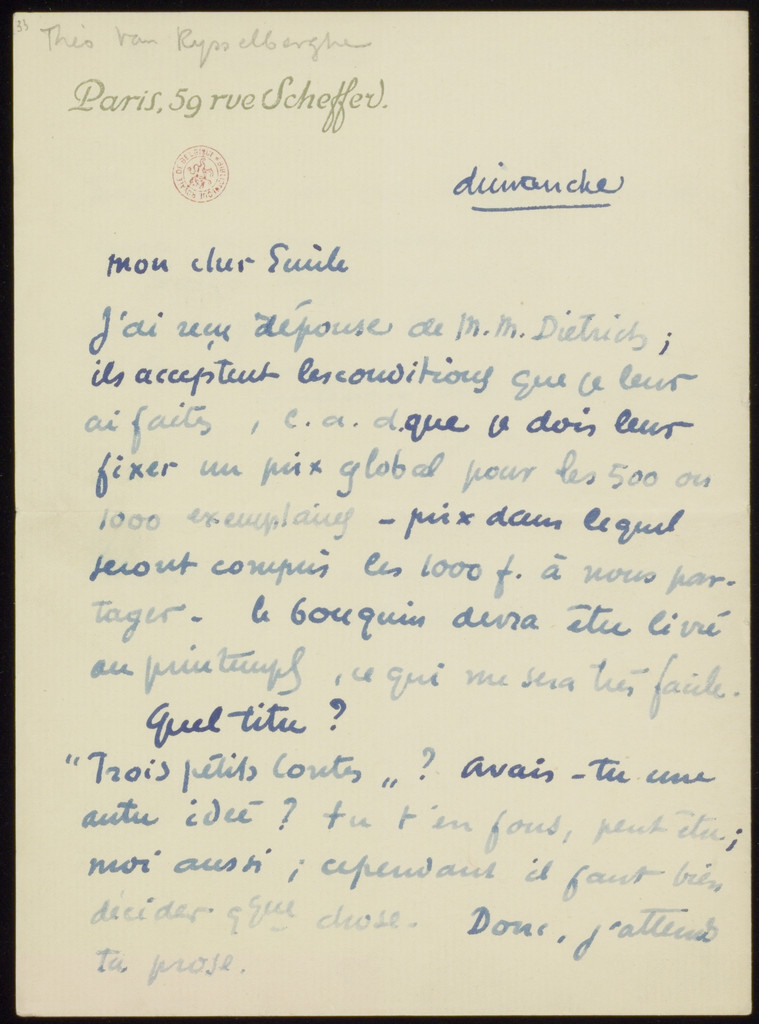 33
Théo Van Rysselberghe
Paris, 59 rue Scheffer.
dimanche
mon cher Emile
J'ai reçu réponse de M.M. Dietrich ;
ils acceptent les conditions que je leur
ai faites, c. a. d. que je dois leur
fixer un prix global pour les 500 ou
1000 exemplaires - prix dans lequel
seront compris les 1000 f. à nous par-
tager - le bouquin devra être livré
au printemps, ce qui me sera très facile.
Quel titre ?
"Trois petits Contes" ? avais-tu une
autre idée ? tu t'en fous, peut être ;
moi aussi ; cependant il faut bien
décider qque chose. Donc, j'attends
ta prose.